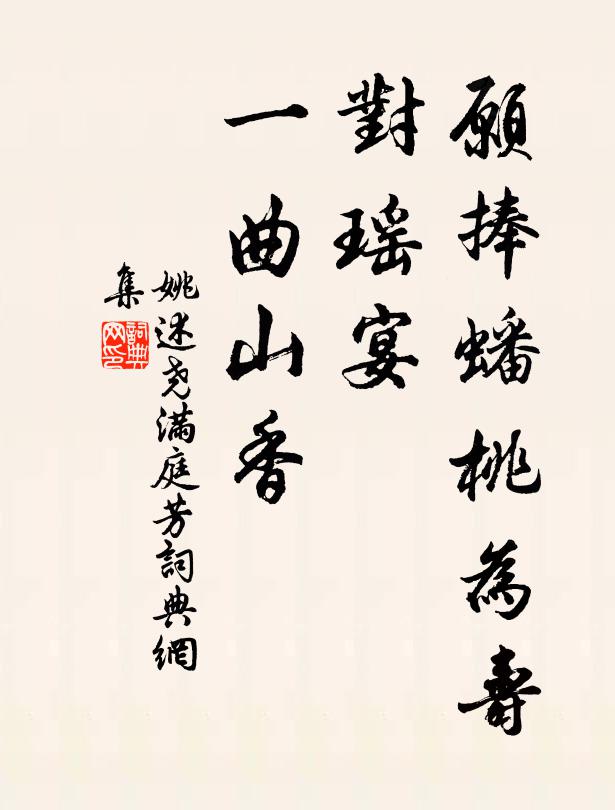 願捧蟠桃為壽
對瑶宴
一曲山香
姚述尧滿庭芳詞典網
集
詞典網印